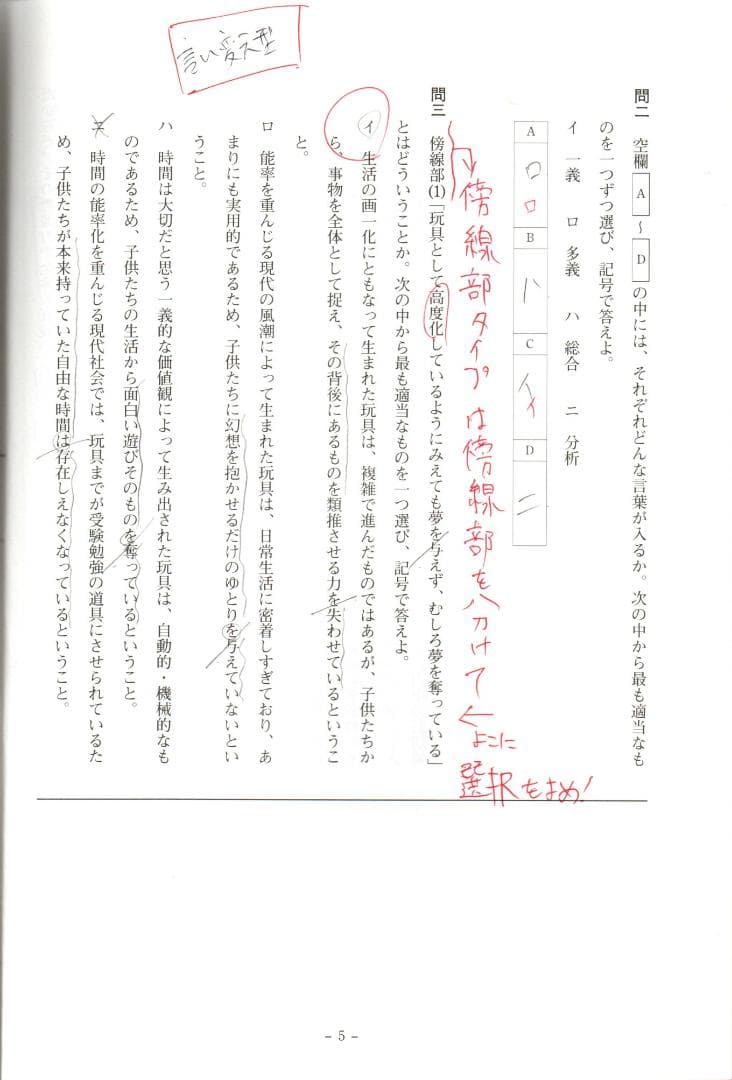 言い変え型
問二 空欄 A 〜 D の中には、それぞれどんな言葉が入るか。次の中から最も適当なも
のを一つずつ選び、記号で答えよ。
イ 一義 ロ 多義 ハ 総合 ニ 分析
A ロ ロ B ハ C イ イ D ニ
傍線部タイプは傍線部を分けて
よこに
選択をまめ!
問三 傍線部(1)「玩具として高度化しているようにみえても夢を与えず、むしろ夢を奪っている」
とはどういうことか。次の中から最も適当なものを一つ選び、記号で答えよ。
イ 生活の画一化にともなって生まれた玩具は、複雑で進んだものではあるが、子供たちか
ら、事物を全体として捉え、その背後にあるものを類推させる力を失わせているというこ
と。
ロ 能率を重んじる現代の風潮によって生まれた玩具は、日常生活に密着しすぎており、あ
まりにも実用的であるため、子供たちに幻想を抱かせるだけのゆとりを与えていないとい
うこと。
ハ 時間は大切だと思う一義的な価値観によって生み出された玩具は、自動的・機械的なも
のであるため、子供たちの生活から面白い遊びそのものを奪っているということ。
ニ 時間の能率化を重んじる現代社会では、玩具までが受験勉強の道具にさせられているた
め、子供たちが本来持っていた自由な時間は存在しえなくなっているということ。
- 5 -